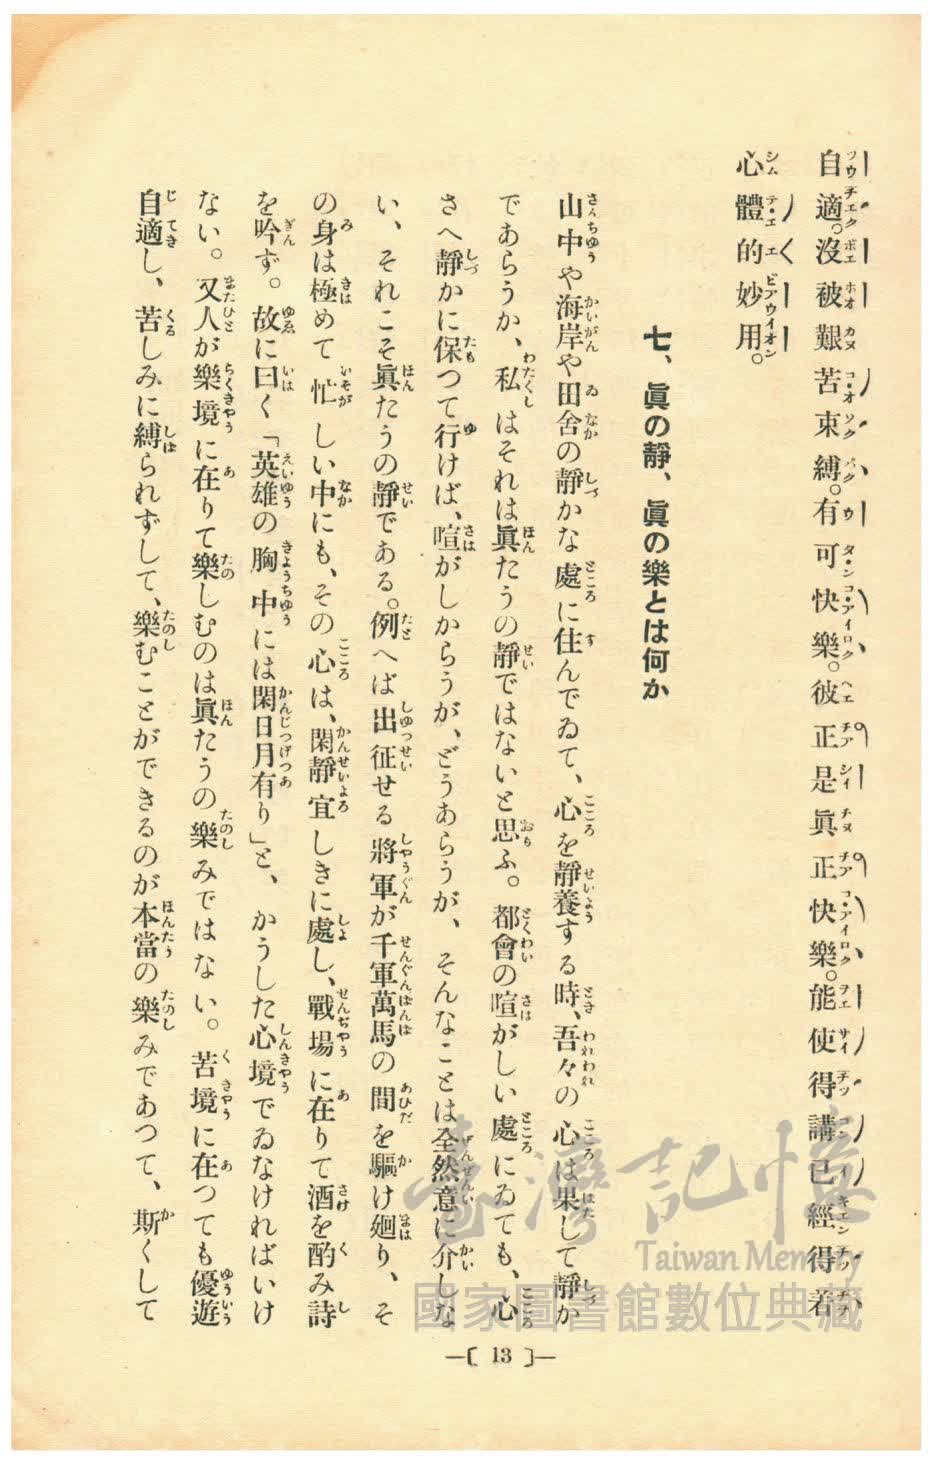 自適。沒被艱苦束縛。有可快樂。彼正是眞正快樂。能使得講已經得着
心體的妙用。
七、眞の靜、眞の樂とは何か
山中や海岸や田舍の靜かな處に住んでゐて、心を靜養する時、吾々の心は果して靜か
であらうか、私はそれは眞たうの靜ではないと思ふ。都會の喧がしい處にゐても、心
さへ靜かに保つて行けば、喧がしからうが、どうあらうが、そんなことは全然意に介しな
い、それこそ眞たうの靜である。例へば出征せる將軍が千軍萬馬の間を驅け廻り、そ
の身は極めて忙しい中にも、その心は、閑靜宜しきに處し、戰場に在りて酒を酌み詩
を吟ず。故に曰く「英雄の胸中には閑日月有り」と、かうした心境でゐなければいけ
ない。又人が樂境に在りて樂しむのは眞たうの樂みではない。苦境に在つても優遊
自適し、苦しみに縛られずして、樂むことができるのが本當の樂みであつて、斯くして
—〔 13 〕—
臺灣記憶
Taiwan Memory
國家圖書館數位典藏